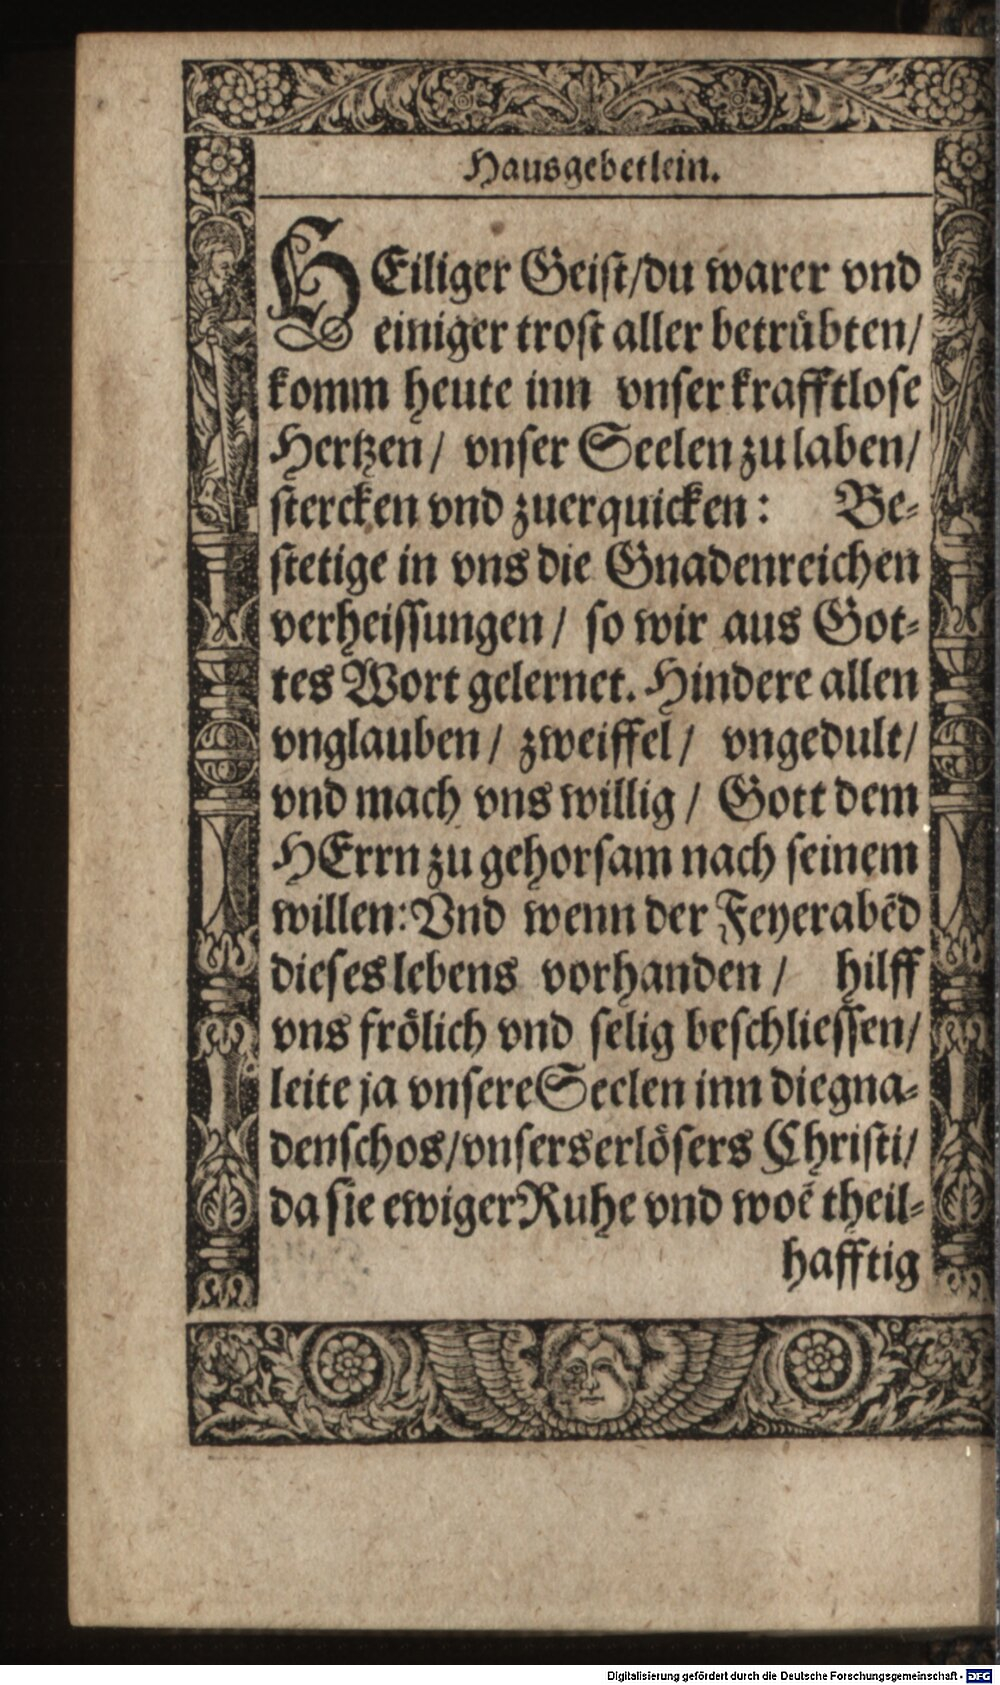 Hausgebetlein.
HEiliger Geist/du warer vnd
einiger trost aller betrübten/
komm heute inn vnser krafftlose
Hertzen/ vnser Seelen zu laben/
stercken vnd zuerquicken: Be-
stetige in vns die Gnadenreichen
verheissungen/ so wir aus Got-
tes Wort gelernet. Hindere allen
vnglauben/ zweiffel/ vngedult/
vnd mach vns willig/ Gott dem
HErrn zu gehorsam nach seinem
willen: Vnd wenn der Feyerabẽd
dieses lebens vorhanden/ hilff
vns frölich vnd selig beschliessen/
leite ja vnsere Seelen inn die gna-
denschos/vnsers erlösers Christi/
da sie ewiger Ruhe vnd woẽ theil-
hafftig
Digitalisierung gefördert durch die Deutsche Forschungsgemeinschaft - DFG